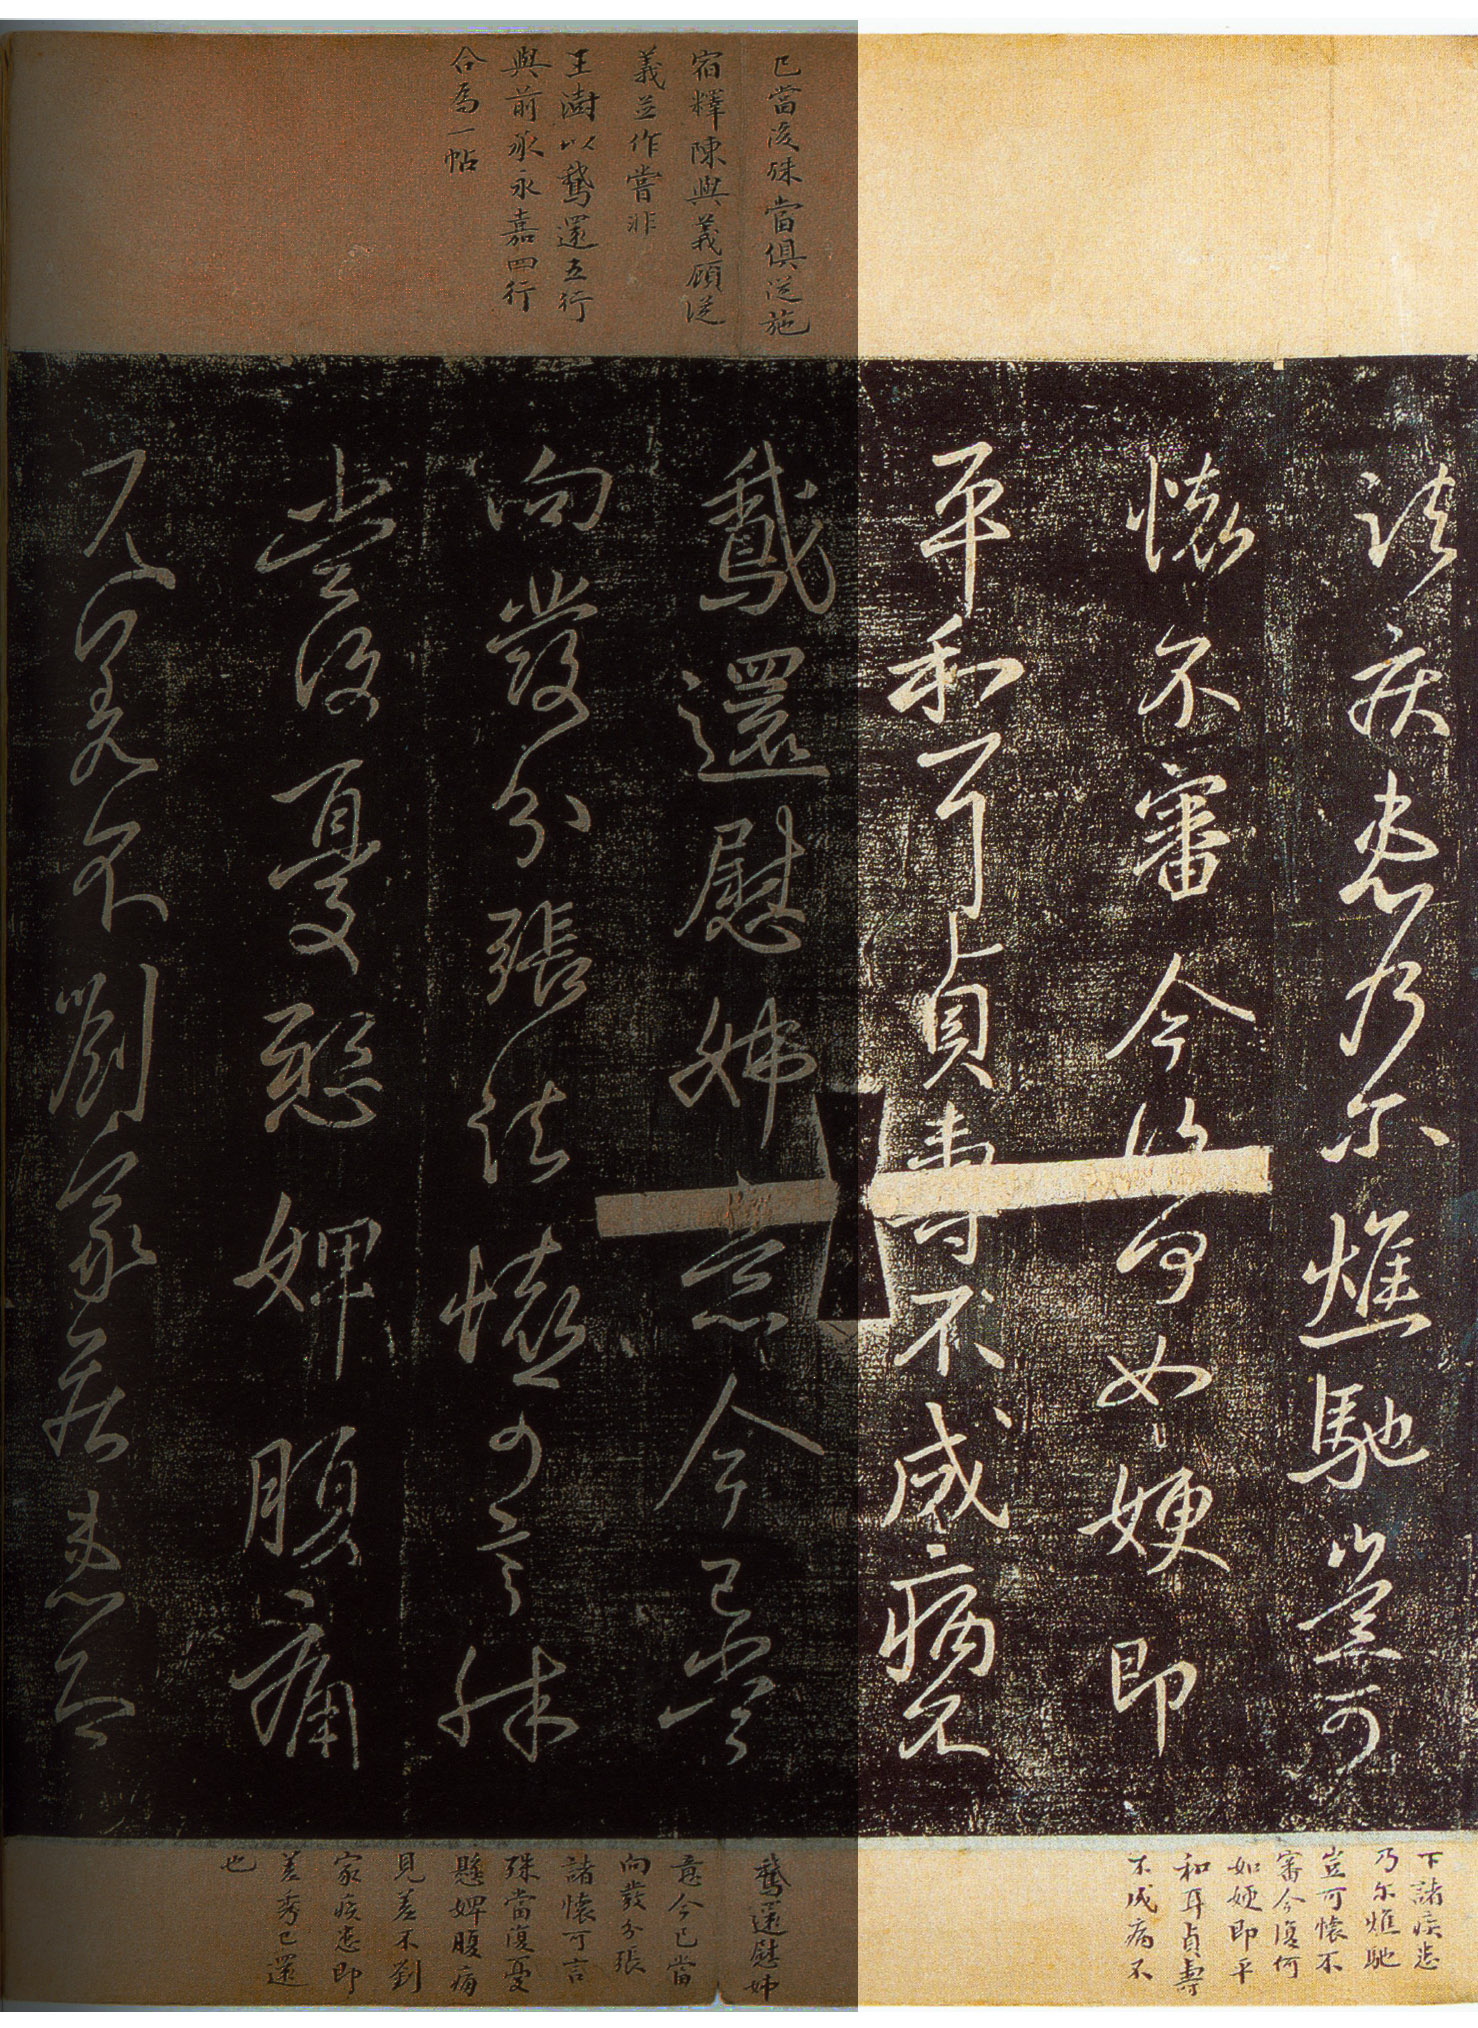 已當復殊當俱從施
宿釋陳與義顧從
義並作嘗非
王澍以鵝還五行
與前承永嘉四行
合為一帖
諸疾患乃尔燋馳豈可
懷不審今復何如媔即
平和耳貞壽不成病不
鵝還慰姊意今已當
向發分張諸懷可言殊
當復憂懸婢腹痛
見差不劉家疾患即
下諸疾患
乃尔燋馳
豈可懷不
審今復何
如媔即平
和耳貞壽
不成病不
鵝還慰姊
意今已當
向發分張
諸懷可言
殊當復憂
懸婢腹痛
見差不劉
家疾患即
差秀已還
也